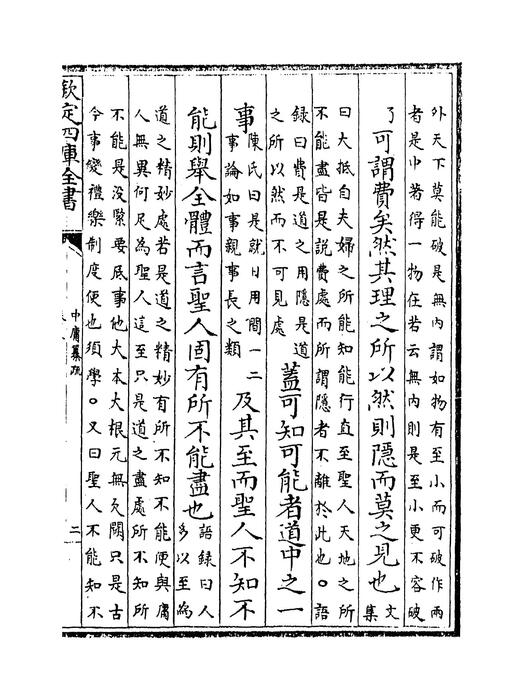 外天下莫能破是無內謂如物有至小而可破作兩
者是中著得一物在若云無內則是至小更不容破
了可謂費矣然其理之所以然則隱而莫之見也文集
曰大抵自夫婦之所能知能行直至聖人天地之所
不能盡皆是說費處而所謂隱者不離於此也。語
錄曰費是道之用隱是道
之所以然而不可見處
蓋可知可能者道中之一
事
陳氏曰是就日用間一二
事論如事親事長之類
及其至而聖人不知不
能則舉全體而言聖人固有所不能盡也
語錄曰人
多以至為
道之精妙處若是道之精妙有所不知不能便與庸
人無異何足為聖人這至只是道之盡處所不知所
不能是沒緊要底事他大本大根元無欠闕只是古
今事變禮樂制度便也須學。又曰聖人不能知不
欽定四庫全書
中庸纂疏
二